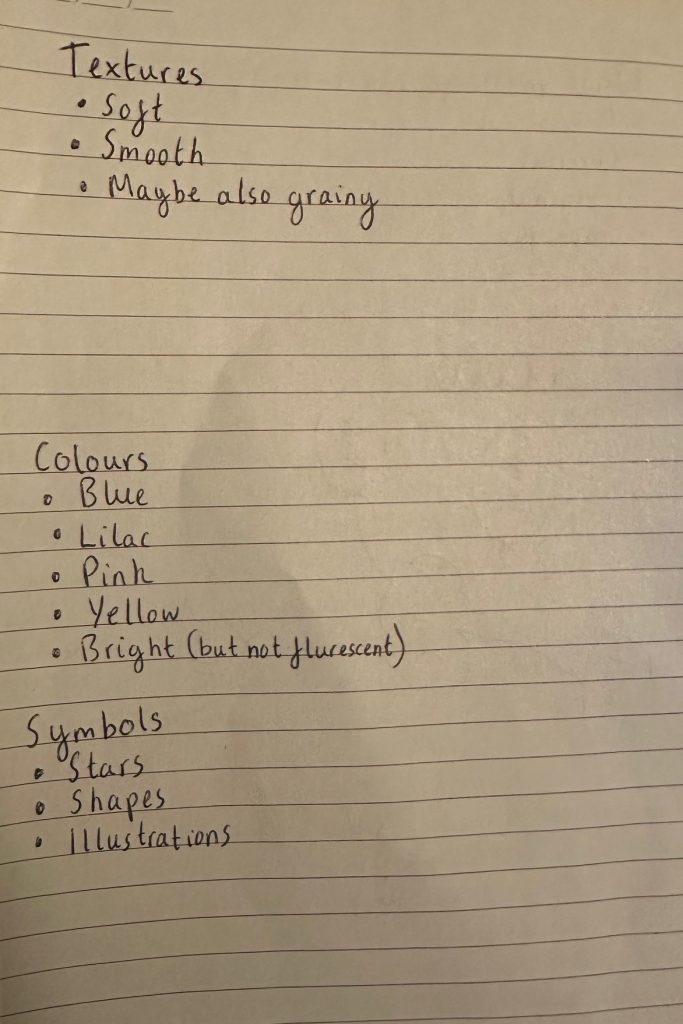 Textures
• Soft
• Smooth
• Maybe also grainy
Colours
• Blue
• Lilac
• Pink
• Yellow
• Bright (but not flurescent)
Symbols
• Stars
• Shapes
• Illustrations